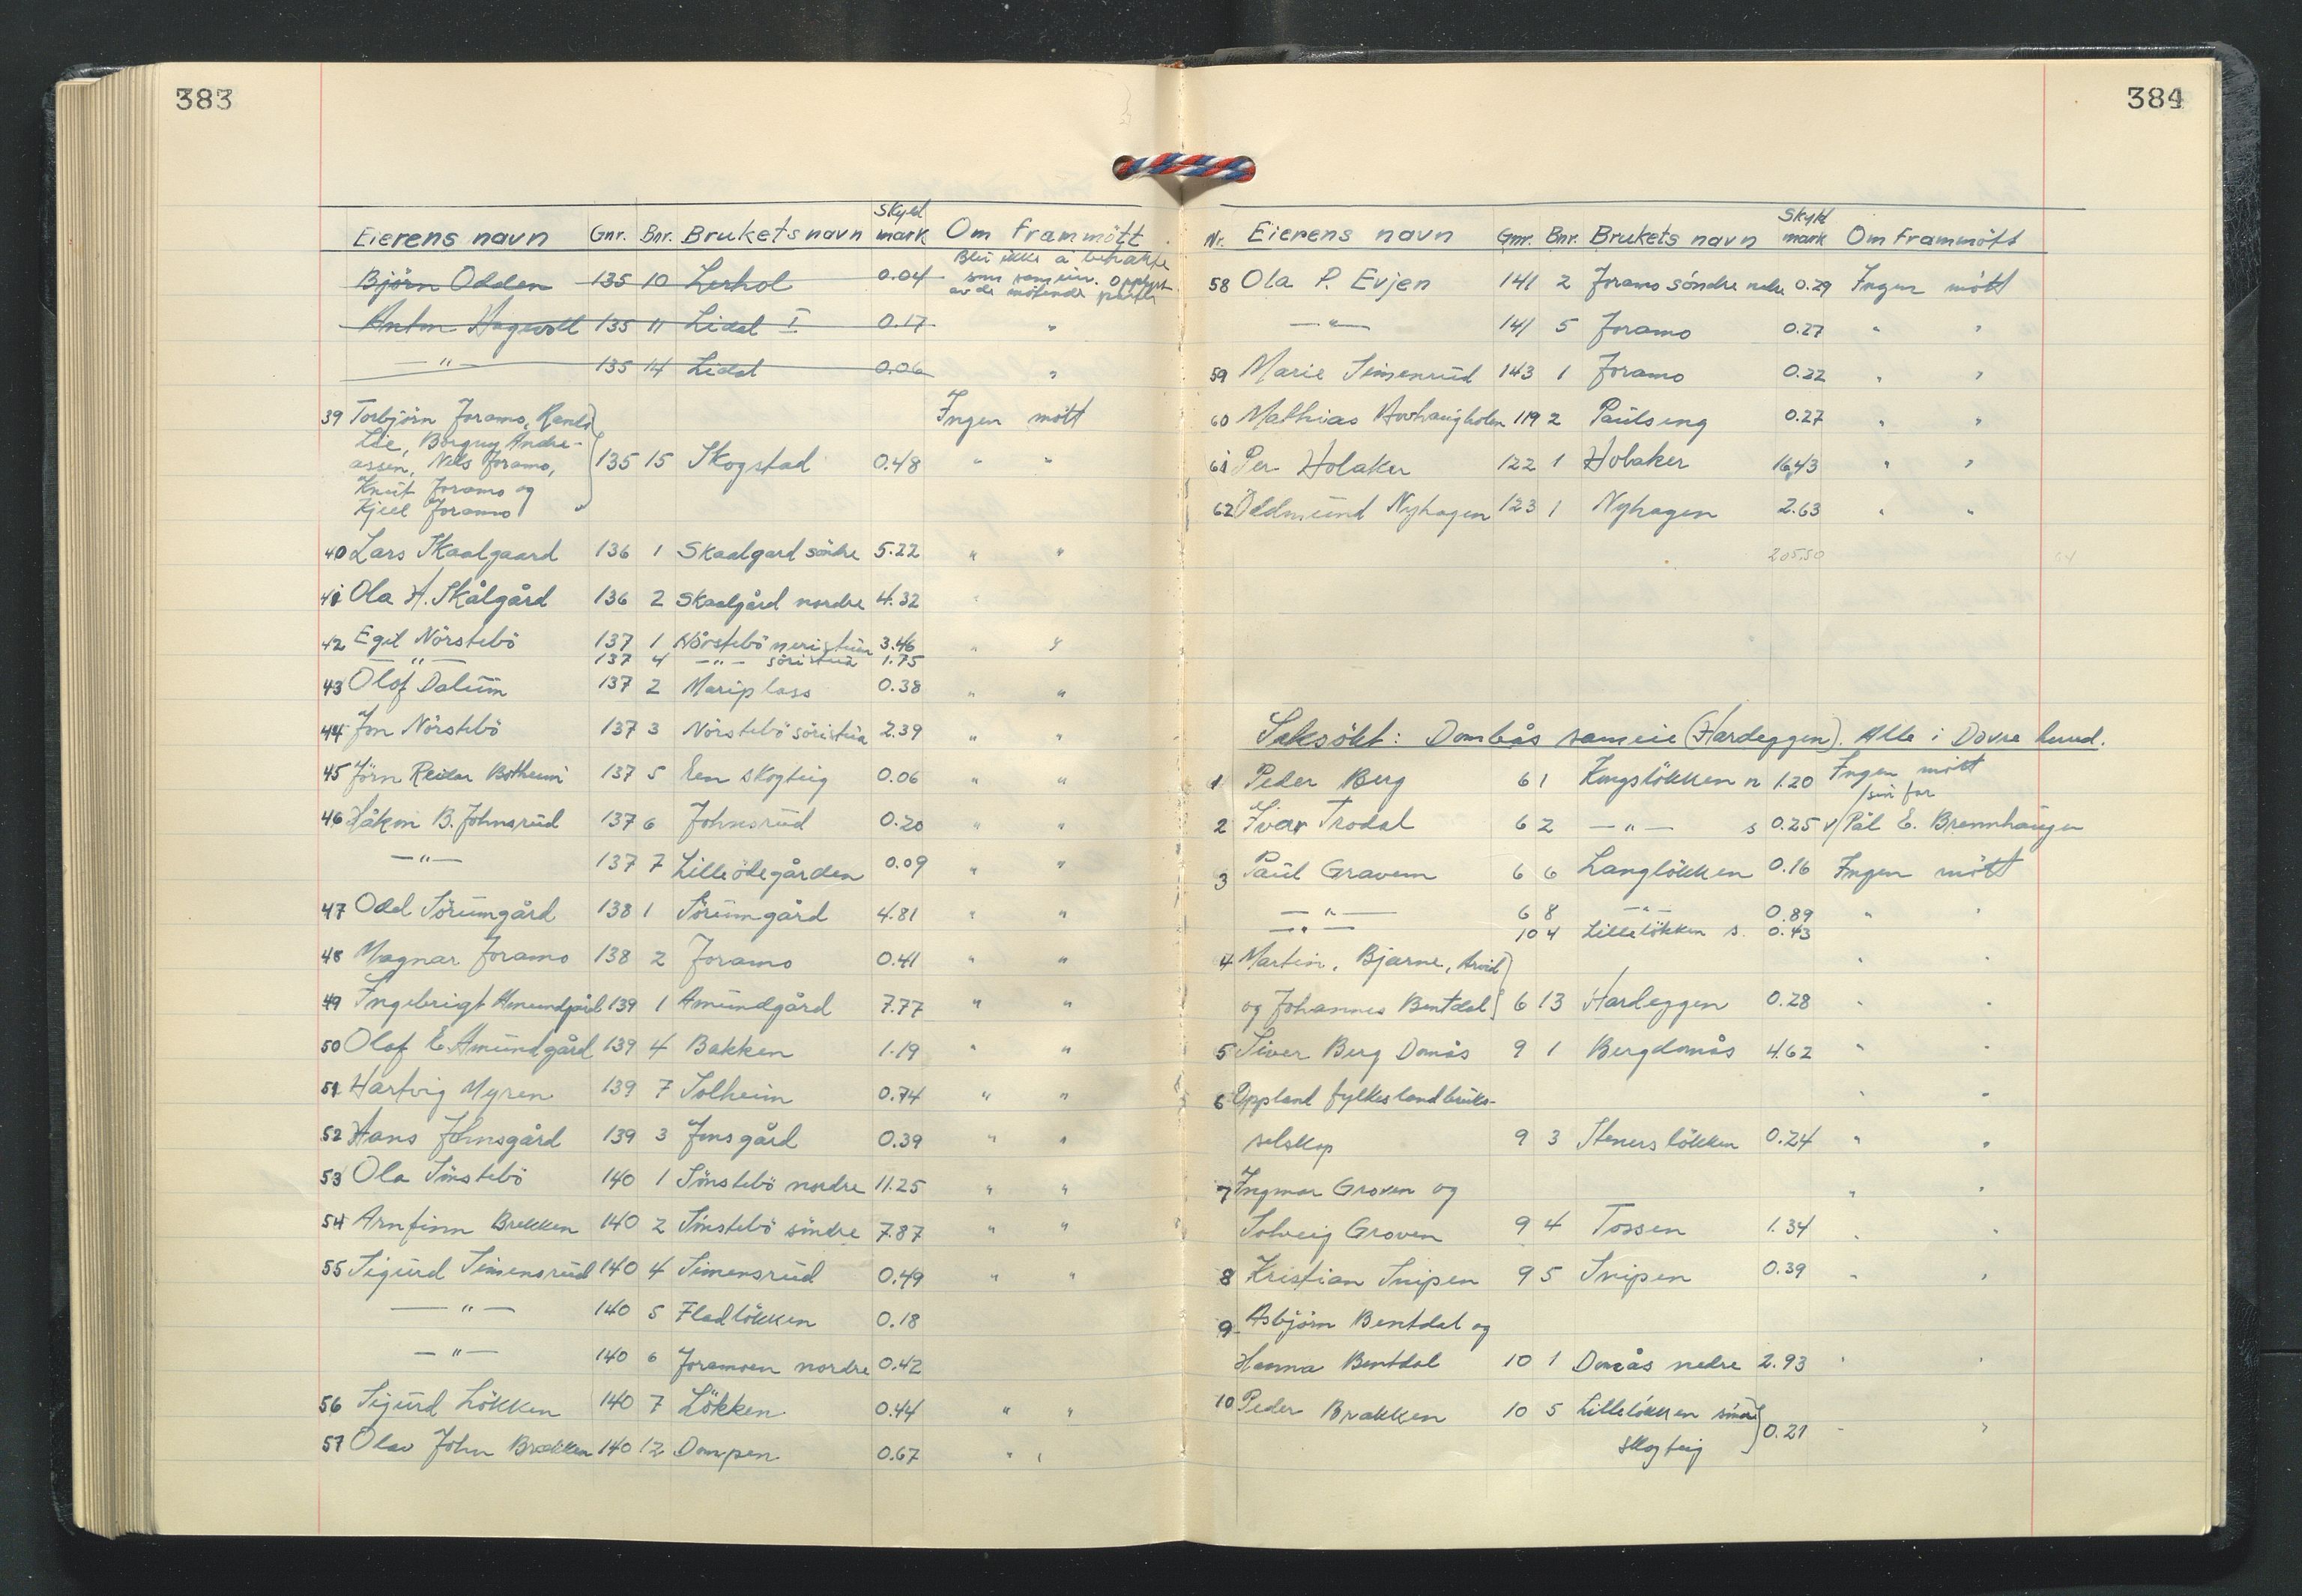 383
Eierens navn Gnr. Bnr. Brukets navn Skyld mark Om frammött
Björn Odden 135 10 Lerhol 0.04 Blir ikke å betrakte
som sameier. Opplyst
av de møtende parter
Anton Hagevoll 135 11 Lidal I 0.17 "
— " — 135 14 Lidal 0.06 "
39 Torbjörn Joramo, Randi Ingen mött
Lie, Borguny Andre-
assen, Nils Joramo, 135 15 Skogstad 0.48 " "
Knut Joramo og
Kjell Joramo
40 Lars Skaalgaard 136 1 Skaalgard söndre 5.22 " "
41 Ola H. Skålgård 136 2 Skaalgård nordre 4.32 "
42 Egil Nörstebö 137 1 Nörstebö neristua 3.46 " "
— " — 137 4 — " — söristua 1.75
43 Olof Dalum 137 2 Mariplass 0.38 " "
44 Jon Nörstebö 137 3 Nörstebö söristua 2.39 " "
45 Jörn Reidar Botheim 137 5 Een skogteig 0.06 " "
46 Håkon B. Johnsrud 137 6 Johnsrud 0.20 " "
— " — 137 7 Lilleödegården 0.09 " "
47 Odd Sörumgård 138 1 Sörumgård 4.81 " "
48 Magnar Joramo 138 2 Joramo 0.41 " "
49 Ingebrigt Amundgård 139 1 Amundgård 7.77 " "
50 Olof E. Amundgård 139 4 Bakken 1.19 " "
51 Hartvig Myren 139 7 Solheim 0.74 " "
52 Hans Johnsgård 139 3 Jonsgård 0.39 " "
53 Ola Sönstebö 140 1 Sönstebö nordre 11.25 " "
54 Arnfinn Brekken 140 2 Sönstebö söndre 7.87 " "
55 Sigurd Simensrud 140 4 Simensrud 0.49 " "
— " — 140 5 Fladlökken 0.18
— " — 140 6 Joramoen nordre 0.42
56 Sigurd Lökken 140 7 Lökken 0.44 " "
57 Olav John Brækken 140 12 Dompen 0.67 " "
384
Nr. Eierens navn Gnr. Bnr. Brukets navn Skyld mark Om frammött
58 Ola P. Evjen 141 2 Joramo söndre nedre 0.29 Ingen mött
— " — 141 5 Joramo 0.27 " "
59 Marie Simenrud 143 1 Joramo 0.22 " "
60 Mathias Hovhaugholen 119 2 Paulseng 0.27 " "
61 Per Holaker 122 1 Holaker 16.43 " "
62 Oddmund Nyhagen 123 1 Nyhagen 2.63 " "
205.50
Saksökt: Dombås sameie (Hardeggen). Alle i Dovre herred.
1 Peder Berg 6 1 Kongslökken n 1.20 Ingen mött
2 Ivar Trodal 6 2 — " — s 0.25 v/sin far Pål E. Brennhaugen
3 Paul Gravem 6 6 Langlökken 0.16 Ingen mött
— " — 6 8 — " — 0.89 " "
— " — 10 4 Lillelökken s. 0.43
4 Martin, Bjarne, Arvid " "
og Johannes Bentdal 6 13 Hardeggen 0.28 " "
5 Siver Berg Domås 9 1 Bergdomås 4.62 " "
6 Oppland fylkes landbruks- " "
selskap 9 3 Steners lökken 0.24 " "
7 Ingmar Groven og " "
Solveig Groven 9 4 Tossen 1.34 " "
8 Kristian Snipen 9 5 Snipen 0.39 " "
9 Asbjörn Bentdal og
Hanna Bentdal 10 1 Domås nedre 2.93 " "
10 Peder Brækken 10 5 Lillelökken söndre
skogteig 0.21 " "